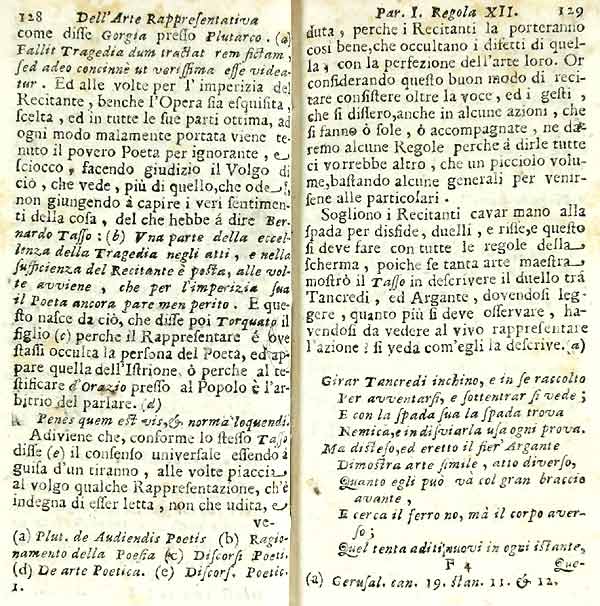 128 Dell'Arte Rappresentativa
come disse Gorgia presso Plutarco. (a)
Fallit Tragedia dum tractat rem fictam,
sed adeo concinnè ut verissima esse videa-
tur. Ed alle volte per l'imperizia del
Recitante, benche l'Opera sia esquisita,
scelta, ed in tutte le sue parti ottima, ad
ogni modo malamente portata viene te-
nuto il povero Poeta per ignorante, e
sciocco, facendo giudizio il Volgo di
ciò, che vede, più di quello, che ode,
non giungendo à capire i veri sentimen-
ti della cosa, del che hebbe á dire Ber-
nardo Tasso: (b) Vna parte della eccel-
lenza della Tragedia negli atti, e nella
sufficienza del Recitante è posta, alle vol-
te avviene, che per l'imperizia sua
il Poeta ancora pare men perito. E que-
sto nasce da ciò, che disse poi Torquato il
figlio (c) perche il Rappresentare é ove
stassi occulta la persona del Poeta, ed ap-
pare quella dell'Istrione, ò perche al te-
stificare d'Orazio presso al Popolo è l'ar-
bitrio del parlare. (d)
Penès quem est vis, & norma loquendi.
Adiviene che, conforme lo stesso Tasso
disse (e) il consenso universale essendo à
guisa d'un tiranno, alle volte piaccia
al volgo qualche Rappresentazione, ch'è
indegna di esser letta, non che udita, e
ve-
(a) Plut. de Audiendis Poetis (b) Ragio-
namento della Poesia (c) Discorsi Poeti.
(d) De arte Poetica. (e) Discors. Poetic.
1.
Par. I. Regola XII. 129
duta, perche i Recitanti la porteranno
così bene, che occultano i difetti di quel-
la, con la perfezione dell'arte loro. Or
considerando questo buon modo di reci-
tare consistere oltre la voce, ed i gesti,
che si dissero, anche in alcune azioni, che
si fanno ò sole, ò accompagnate, ne da-
remo alcune Regole perche á dirle tutte
ci vorrebbe altro, che un picciolo volu-
me, bastando alcune generali per venir-
sene alle particolari.
Sogliono i Recitanti cavar mano alla
spada per disfide, duelli, e risse, e questo
si deve fare con tutte le regole della
scherma, poiche se tanta arte maestra
mostrò il Tasso in descrivere il duello trá
Tancredi, ed Argante, dovendosi leg-
gere, quanto più si deve osservare, ha-
vendosi da vedere al vivo rappresentare
l'azione? si veda com'egli la descrive. (a)
Girar Tancredi inchino, e in se raccolto
Per avventarsi, e sottentrar si vede;
E con la spada sua la spada trova
Nemica, e in disviarla usa ogni prova.
Ma disteso, ed eretto il fier' Argante
Dimostra arte simile, atto diverso,
Quanto egli può và col gran braccio
avante,
E cerca il ferro no, mà il corpo aver-
so;
Quel tenta aditi nuovi in ogni istante,
F 4 Que-
(a) Gerusal. can. 19. stan. 11. & 12.